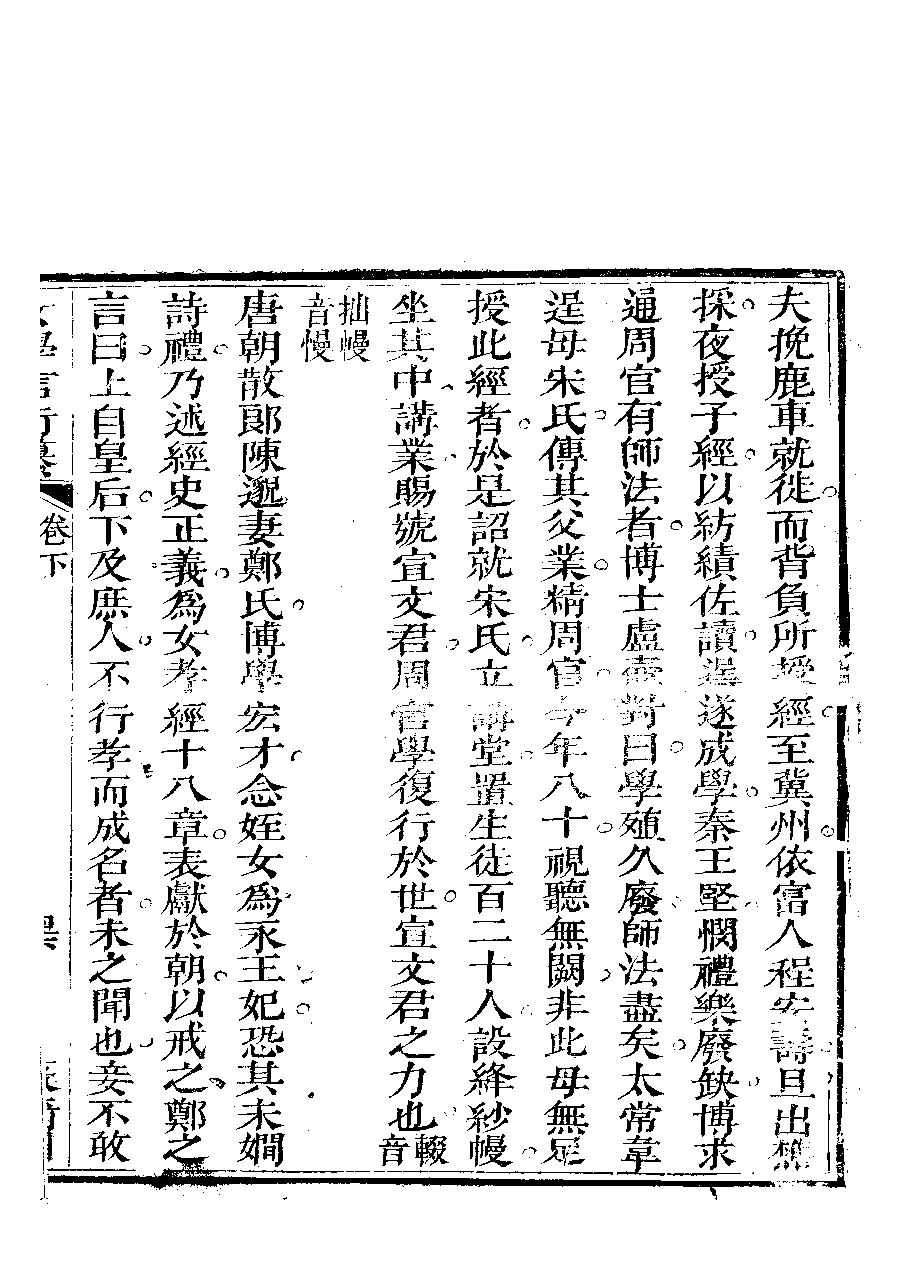 夫挽鹿車就徙而背負所授經至冀州依富人程安壽旦出樵
採夜授子經以紡績佐讀逞遂成學秦王堅憫禮樂廢缺博求
通周官有師法者博士盧壼對曰學殖久廢師法盡矣太常韋
逞母宋氏傳其父業精周官今年八十視聽無闕非此母無足
授此經者於是詔就宋氏立講堂置生徒百二十人設絳紗幔
坐其中講業賜號宣文君周官學復行於世宣文君之力也輟音
拙幔
音慢
唐朝散郎陳邈妻鄭氏博學宏才念姪女為永王妃恐其未嫺
詩禮乃述經史正義為女孝經十八章表獻於朝以戒之鄭之
言曰上自皇后下及庶人不行孝而成名者未之聞也妾不敢
女學言行纂
卷下